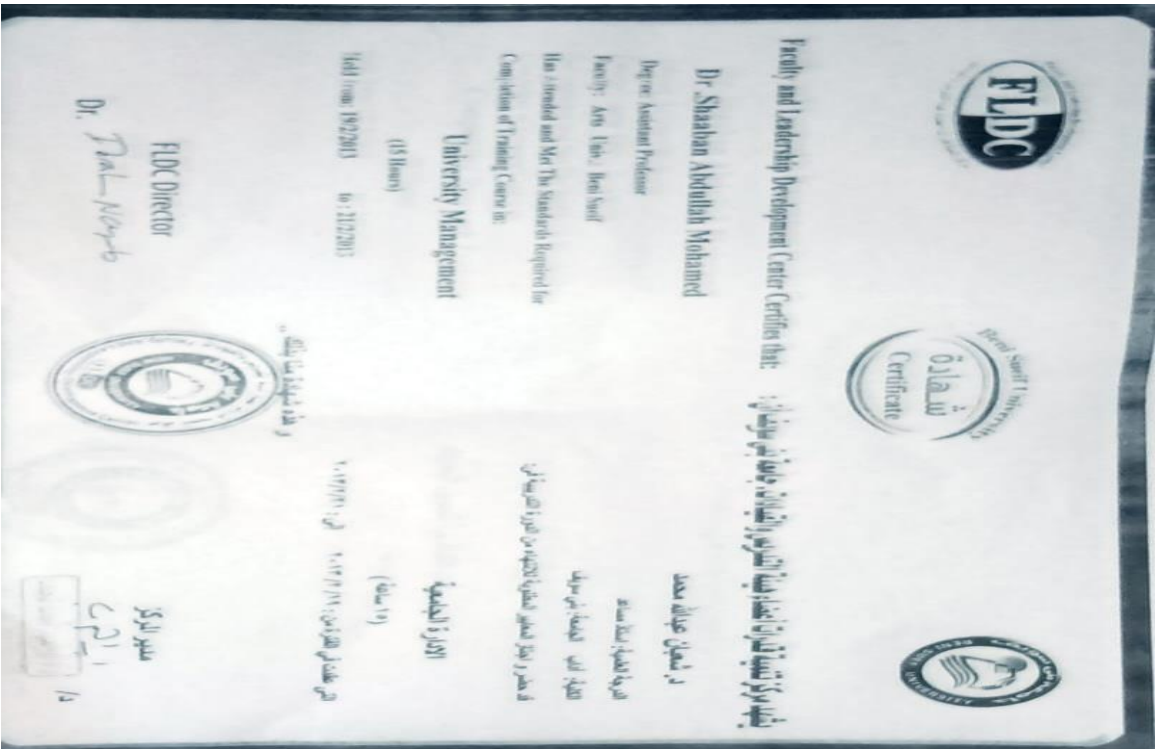 FLDC
Beni Sueif University
شهادة
Certificate
Faculty and Leadership Development Center Certifies that:
Dr. Shaaban Abdullah Mohamed
Degree: Assistant Professor
Faculty: Arts Univ.: Beni Sueif
Has Attended and Met The Standards Required for
Completion of Training Course in:
University Management
(15 Hours)
Held from 19/2/2013 to: 21/2/2013
FLDC Director
Dr.
يشهد مركز تنمية قدرات أعضاء هيئة التدريس والقيادات بجامعة بني سويف أن:
د. شعبان عبدالله محمد
الدرجة العلمية: أستاذ مساعد
الكلية: آداب الجامعة: بني سويف
قد حضر و اجتاز المعايير المطلوبة للانتهاء من الدورة التدريبية في:
الادارة الجامعية
(١٥ ساعة)
التي عقدت في الفترة من: ٢٠١٣/٢/١٩ الى: ٢٠١٣/٢/٢١
و هذه شهادة منا بذلك ,,
مدير المركز
د/